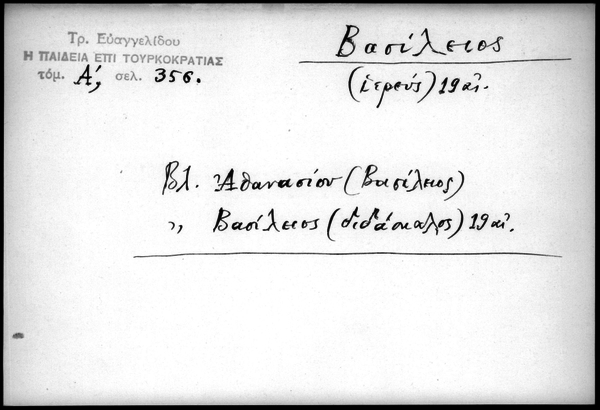 Τρ. Εὐαγγελίδου
Η ΠΑΙΔΕΙΑ ΕΠΙ ΤΟΥΡΚΟΚΡΑΤΙΑΣ
τόμ. Α', σελ. 356.
Βασίλειος
(ἱερεύς) 19 αἰ.
Βλ. Ἀθανασίου (Βασίλειος)
,, Βασίλειος (διδάσκαλος) 19 αἰ.